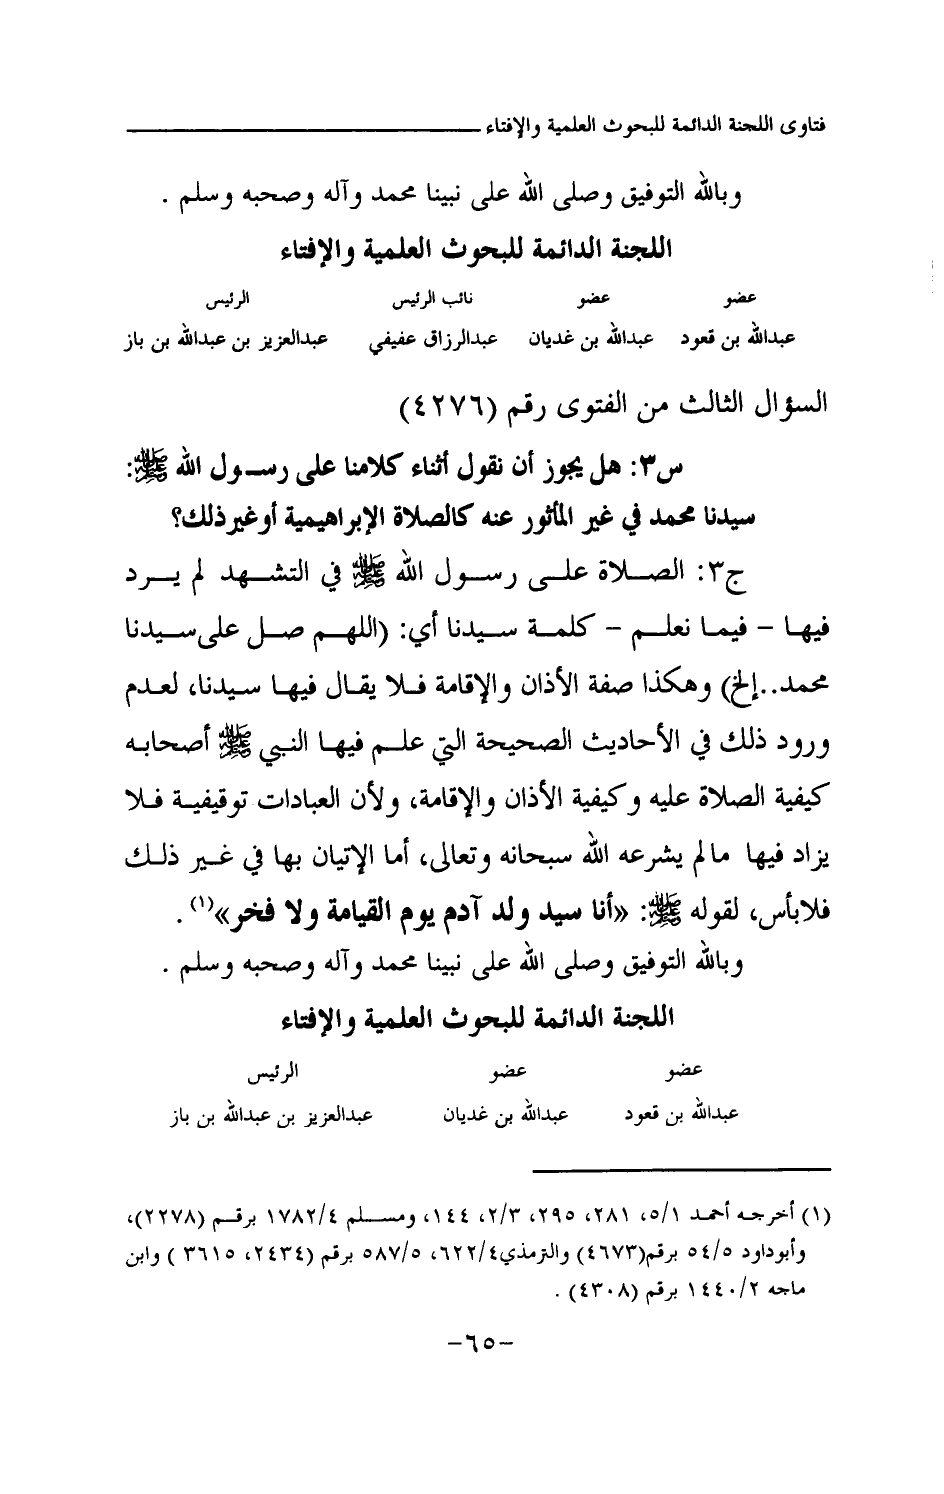 فتاوى اللجنة الدائمة للبحوث العلمية والإفتاء
وبالله التوفيق وصلى الله على نبينا محمد وآله وصحبه وسلم .
اللجنة الدائمة للبحوث العلمية والإفتاء
عضو عضو نائب الرئيس الرئيس
عبدالله بن قعود عبدالله بن غديان عبدالرزاق عفيفي عبدالعزيز بن عبدالله بن باز
السؤال الثالث من الفتوى رقم (٤٢٧٦)
س٣: هل يجوز أن نقول أثناء كلامنا على رسول الله ﷺ:
سيدنا محمد في غير المأثور عنه كالصلاة الإبراهيمية أوغيرذلك؟
ج٣: الصلاة على رسول الله ﷺ في التشهد لم يرد
فيها – فيما نعلم – كلمة سيدنا أي: (اللهم صل على سيدنا
محمد..إلخ) وهكذا صفة الأذان والإقامة فلا يقال فيها سيدنا، لعدم
ورود ذلك في الأحاديث الصحيحة التي علم فيها النبي ﷺ أصحابه
كيفية الصلاة عليه وكيفية الأذان والإقامة، ولأن العبادات توقيفية فلا
يزاد فيها مالم يشرعه الله سبحانه وتعالى، أما الإتيان بها في غير ذلك
فلابأس، لقوله ﷺ: «أنا سيد ولد آدم يوم القيامة ولا فخر»(١) .
وبالله التوفيق وصلى الله على نبينا محمد وآله وصحبه وسلم .
اللجنة الدائمة للبحوث العلمية والإفتاء
عضو عضو الرئيس
عبدالله بن قعود عبدالله بن غديان عبدالعزيز بن عبدالله بن باز
(١) أخرجه أحمد ٥/١، ٢٨١، ٢٩٥، ٢/٣، ١٤٤، ومسلم ١٧٨٢/٤ برقم (٢٢٧٨)،
وأبوداود ٥٤/٥ برقم(٤٦٧٣) والترمذي٦٢٢/٤، ٥٨٧/٥ برقم (٢٤٣٤، ٣٦١٥ ) وابن
ماجه ١٤٤٠/٢ برقم (٤٣٠٨) .
–٦٥–